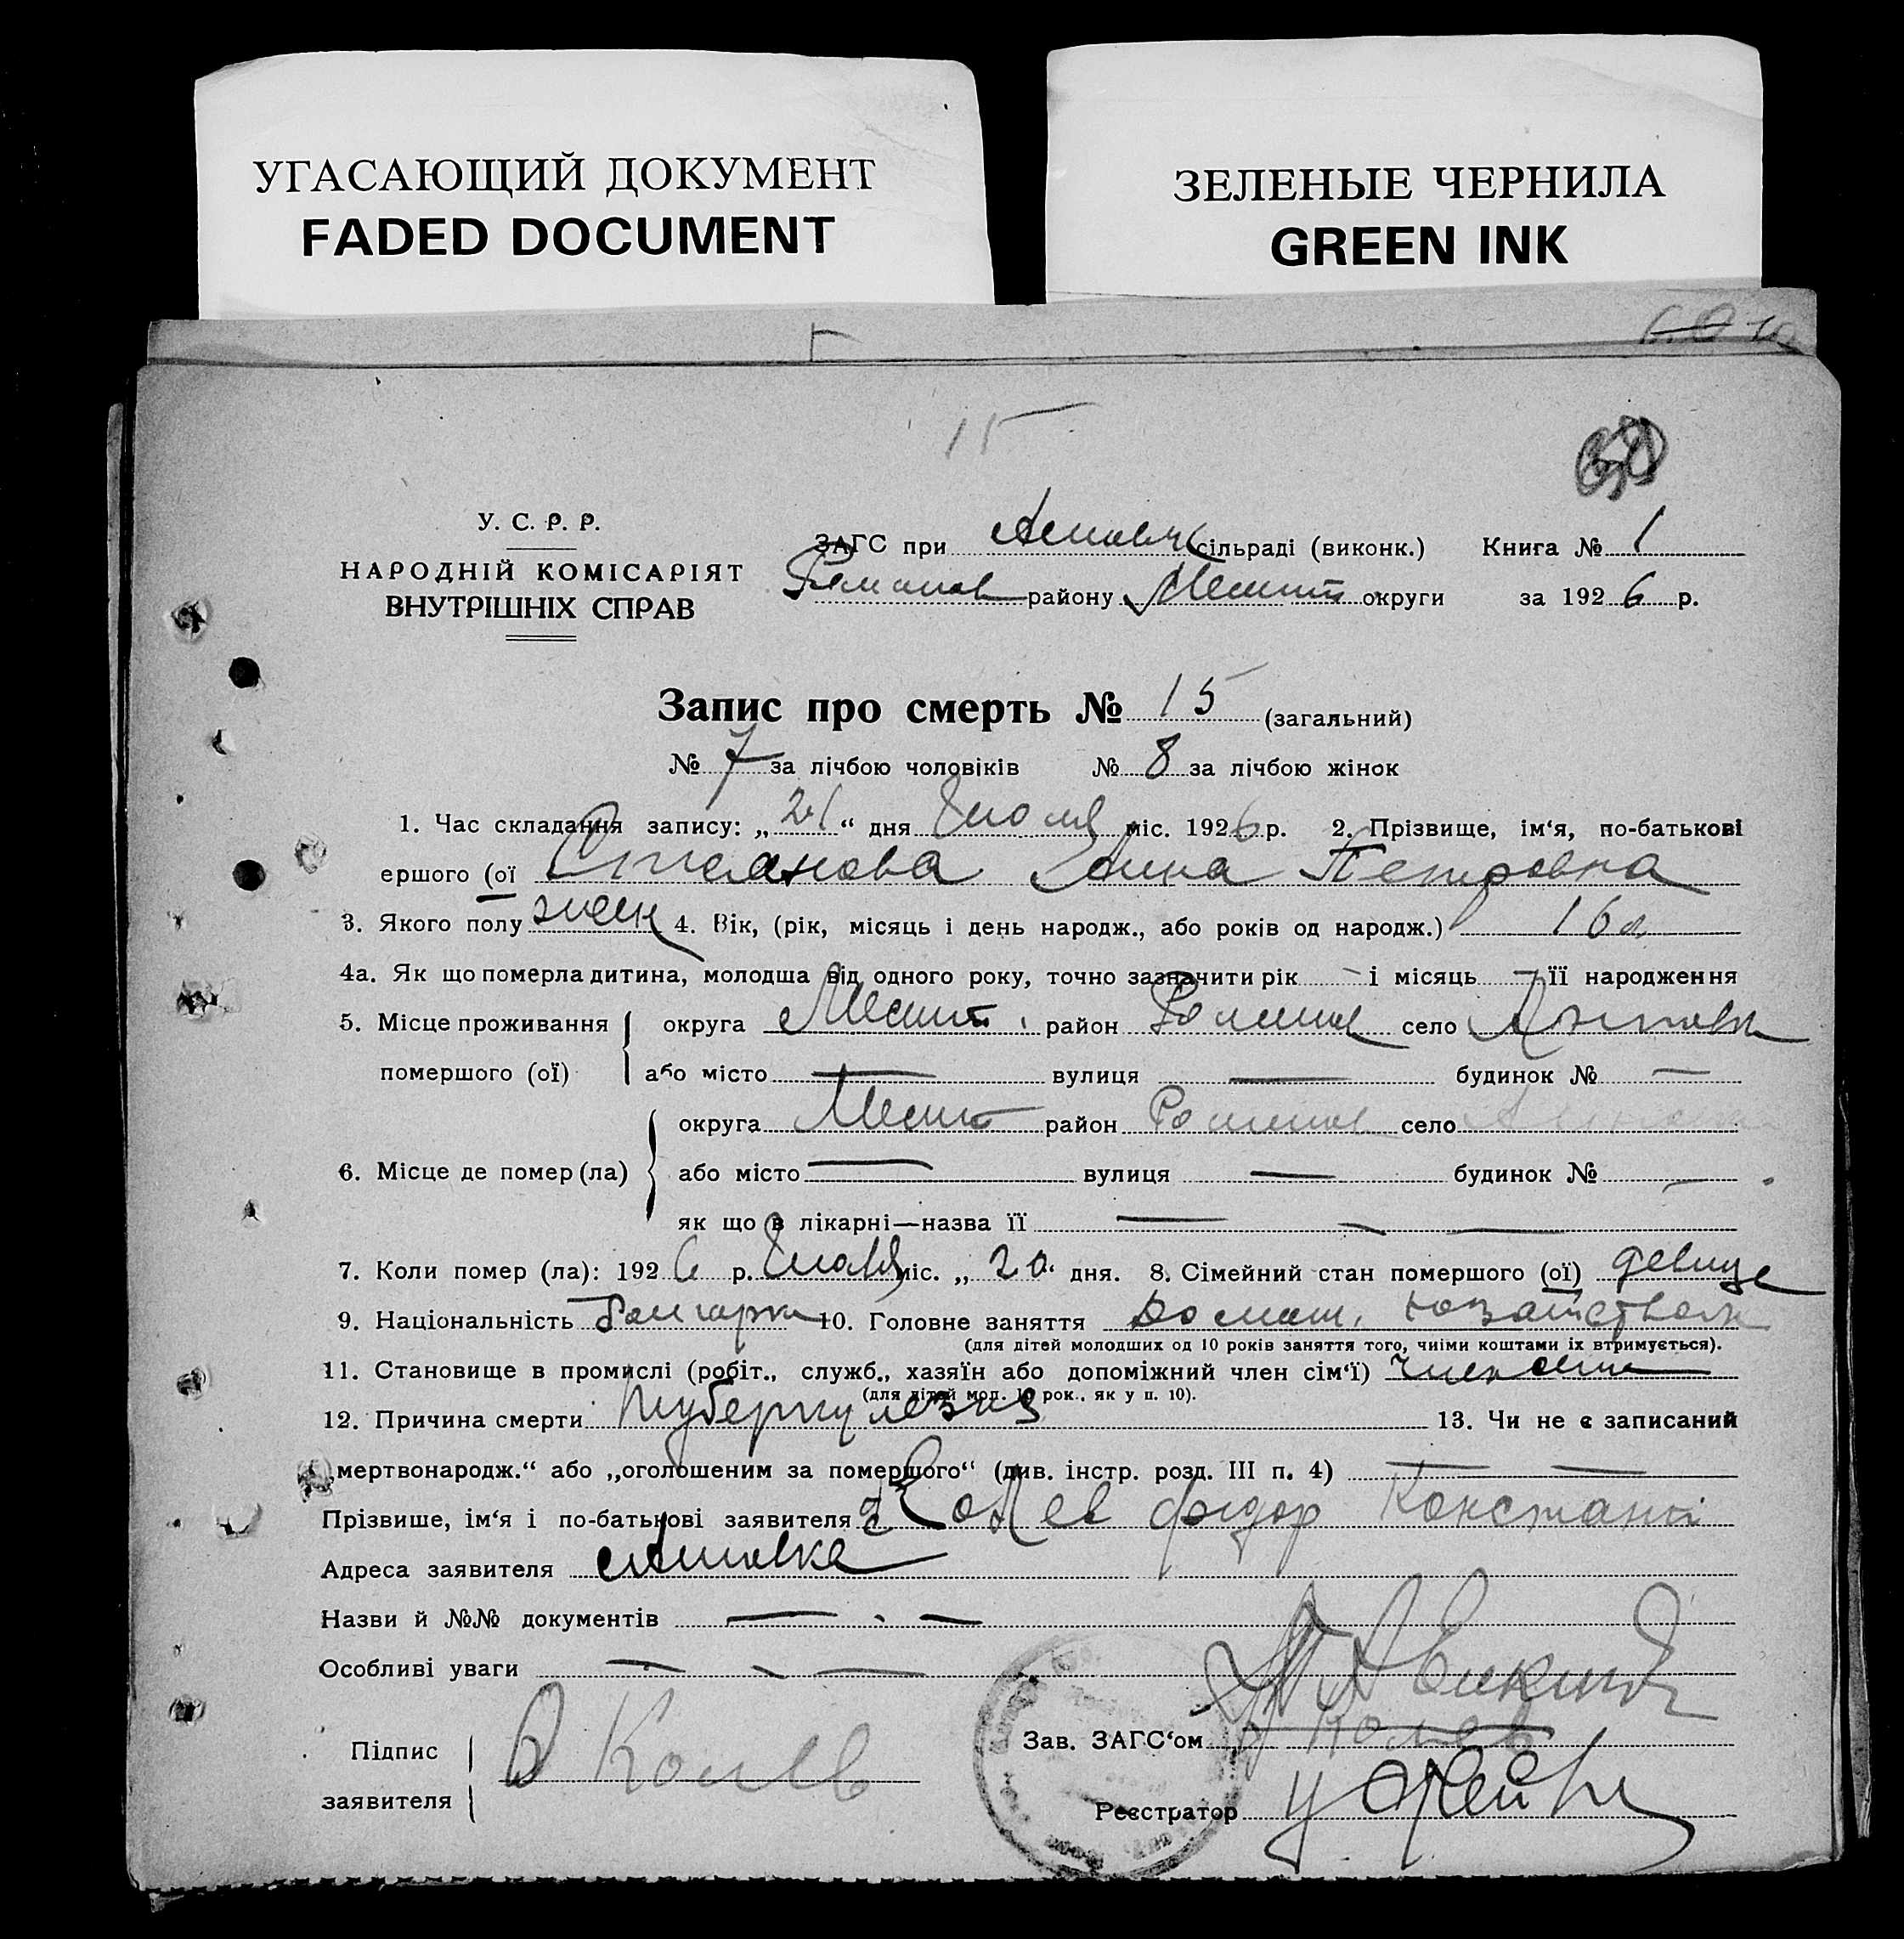 УГАСАЮЩИЙ ДОКУМЕНТ
FADED DOCUMENT
ЗЕЛЕНЫЕ ЧЕРНИЛА
GREEN INK
15
У. С. Р. Р.
НАРОДНІЙ КОМІСАРІЯТ
ВНУТРІШНІХ СПРАВ
ЗАГС при сільраді (виконк.) Книга № 1
району округи за 1926 р.
Запис про смерть № 15 (загальний)
№ 7 за лічбою чоловіків № 8 за лічбою жінок
1. Час складання запису: „21“ дня Июля міс. 1926 р. 2. Прізвище, ім‘я, по-батькові
ершого (ої Стоянова Анна Петровна
3. Якого полу жен 4. Вік, (рік, місяць і день народж., або років од народж.) 16 л
4а. Як що померла дитина, молодша від одного року, точно зазначити рік — і місяць — її народження
5. Місце проживання округа район село
померш​ого (ої) або місто — вулиця — будинок № —
округа район село
6. Місце де помер (ла) або місто — вулиця — будинок № —
як що в лікарні—назва її — — —
7. Коли помер (ла): 1926 р. Июля міс. „20“ дня. 8. Сімейний стан помершого (ої) девица
9. Національність болгарка 10. Головне заняття домаш. хозайством
(для дітей молодших од 10 років заняття того, чиїми коштами їх втримується).
11. Становище в промислі (робіт., служб., хазяїн або допоміжний член сім‘ї) член сем
(для дітей мол. 10 рок., як у п. 10).
12. Причина смерти туберкулеза 13. Чи не є записаний
„мертвонародж.“ або „оголошеним за помершого“ (див. інстр. розд. III п. 4) — —
Прізвише, ім‘я і по-батькові заявителя Колев Фидор Констант
Адреса заявителя
Назви й №№ документів — —
Особливі уваги — — —
Підпис
заявителя Колев
Зав. ЗАГС‘ом
Реєстратор